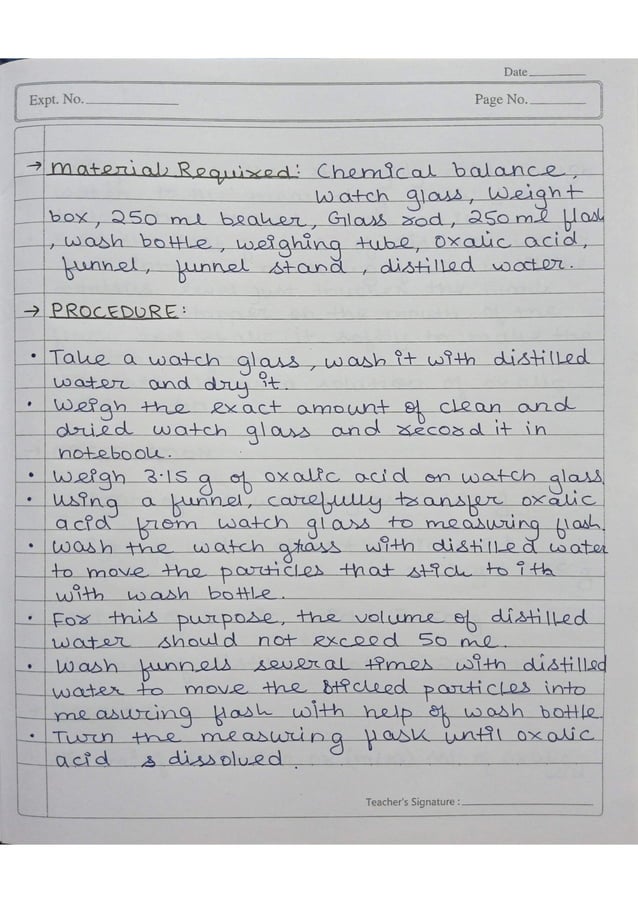 Date
Expt. No.
Page No.
→ Material Required: Chemical balance,
Watch glass, Weight
box, 250 ml beaker, Glass rod, 250 ml flask
, wash bottle, weighing tube, oxalic acid,
funnel, funnel stand, distilled water.
→ PROCEDURE:
• Take a watch glass, wash it with distilled
water and dry it.
• Weigh the exact amount of clean and
dried watch glass and record it in
notebook.
• Weigh 3.15 g of oxalic acid on watch glass
• Using a funnel, carefully transfer oxalic
acid from watch glass to measuring flask.
• Wash the watch grass with distilled water
to move the particles that stick to it
with wash bottle.
• For this purpose, the volume of distilled
water should not exceed 50 ml.
• Wash funnels several times with distilled
water to move the sticked particles into
measuring flask with help of wash bottle.
• Turn the measuring flask until oxalic
acid s dissolved.
Teacher's Signature :